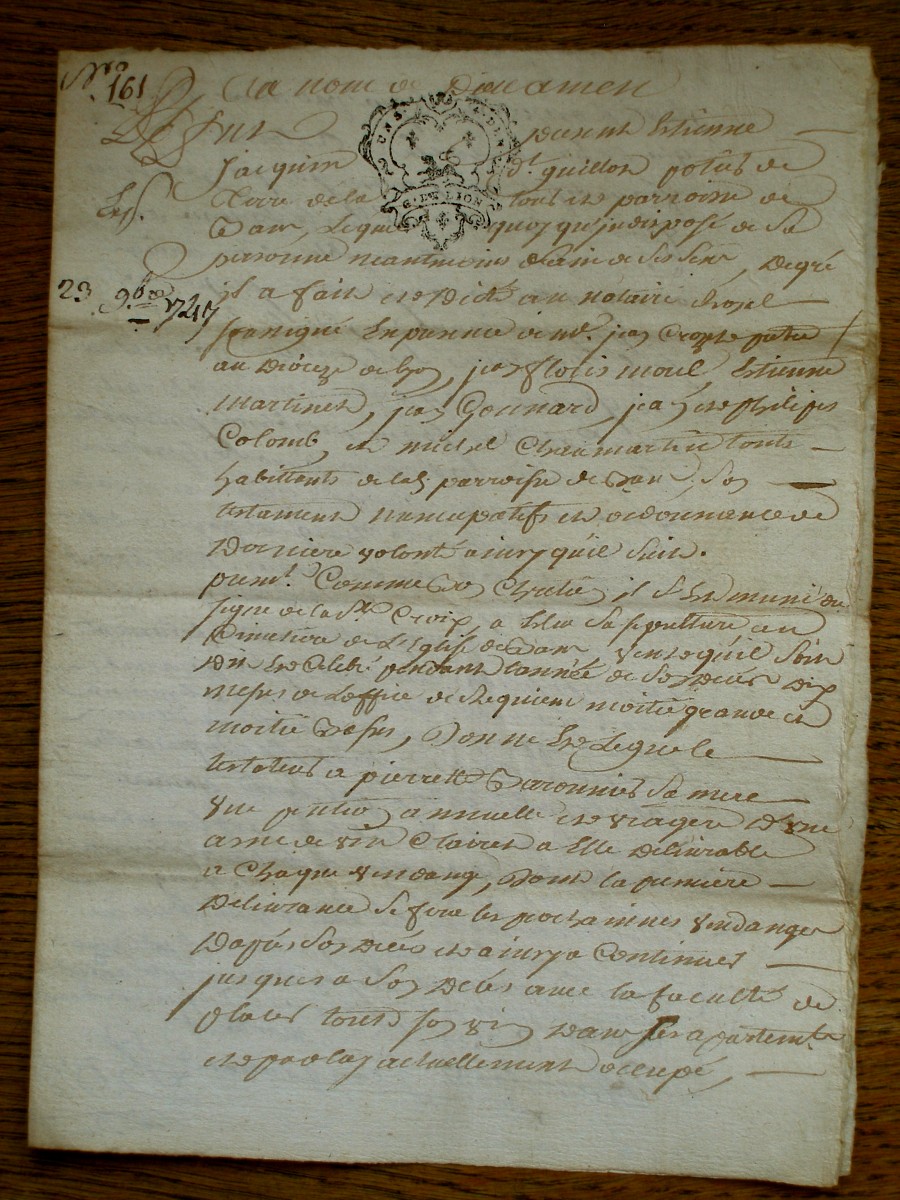 No 161
Au nom de Dieu amen
Fut present Estienne
Jacquier dt guillon potier de
terre de la tout et parroisse de
Dans, Lequel quoy qu'jndisposé de sa
personne neantmoins sain de ses sens, de gré
il a fait et dicté au notaire Royal
soussigné En presence de mre. jean prêtre
au Dioceze de Lyon, jean Estienne
martinet, jean Gonnard, jean et philipe
Colomb, et michel Chaumartin touts
habittants de lad. parroisse de son
testament nuncupatifs et ordonnance de
Derniere volonté ainsy qu'il suit.
premt. Comme bon Chretien il s'est muni du
signe de la Ste Croix, a Eleu sa sepulture au
Cimetiere de L'Eglise de veut qu'il soit
Dit et Celebré pendant l'année de son Deces Dix
messes de L'office de Requiem moitié grandes et
moitié basses, Donne et Legue le
testateur a pierrette sa mere
Une pention annuelle et viagere D'une
asnée de vin Clairet a Elle Delivrable
a Chaque vendange, Dont la premiere
Delivrance se fera les prochaines vendanges
D'apres son Deces et ainsy a Continuer
jusques a son Deces avec la faculté de
placer tout son vin dans les apartements
et par luy actuellement occupé,
23 9bre 1747
G. DE LION